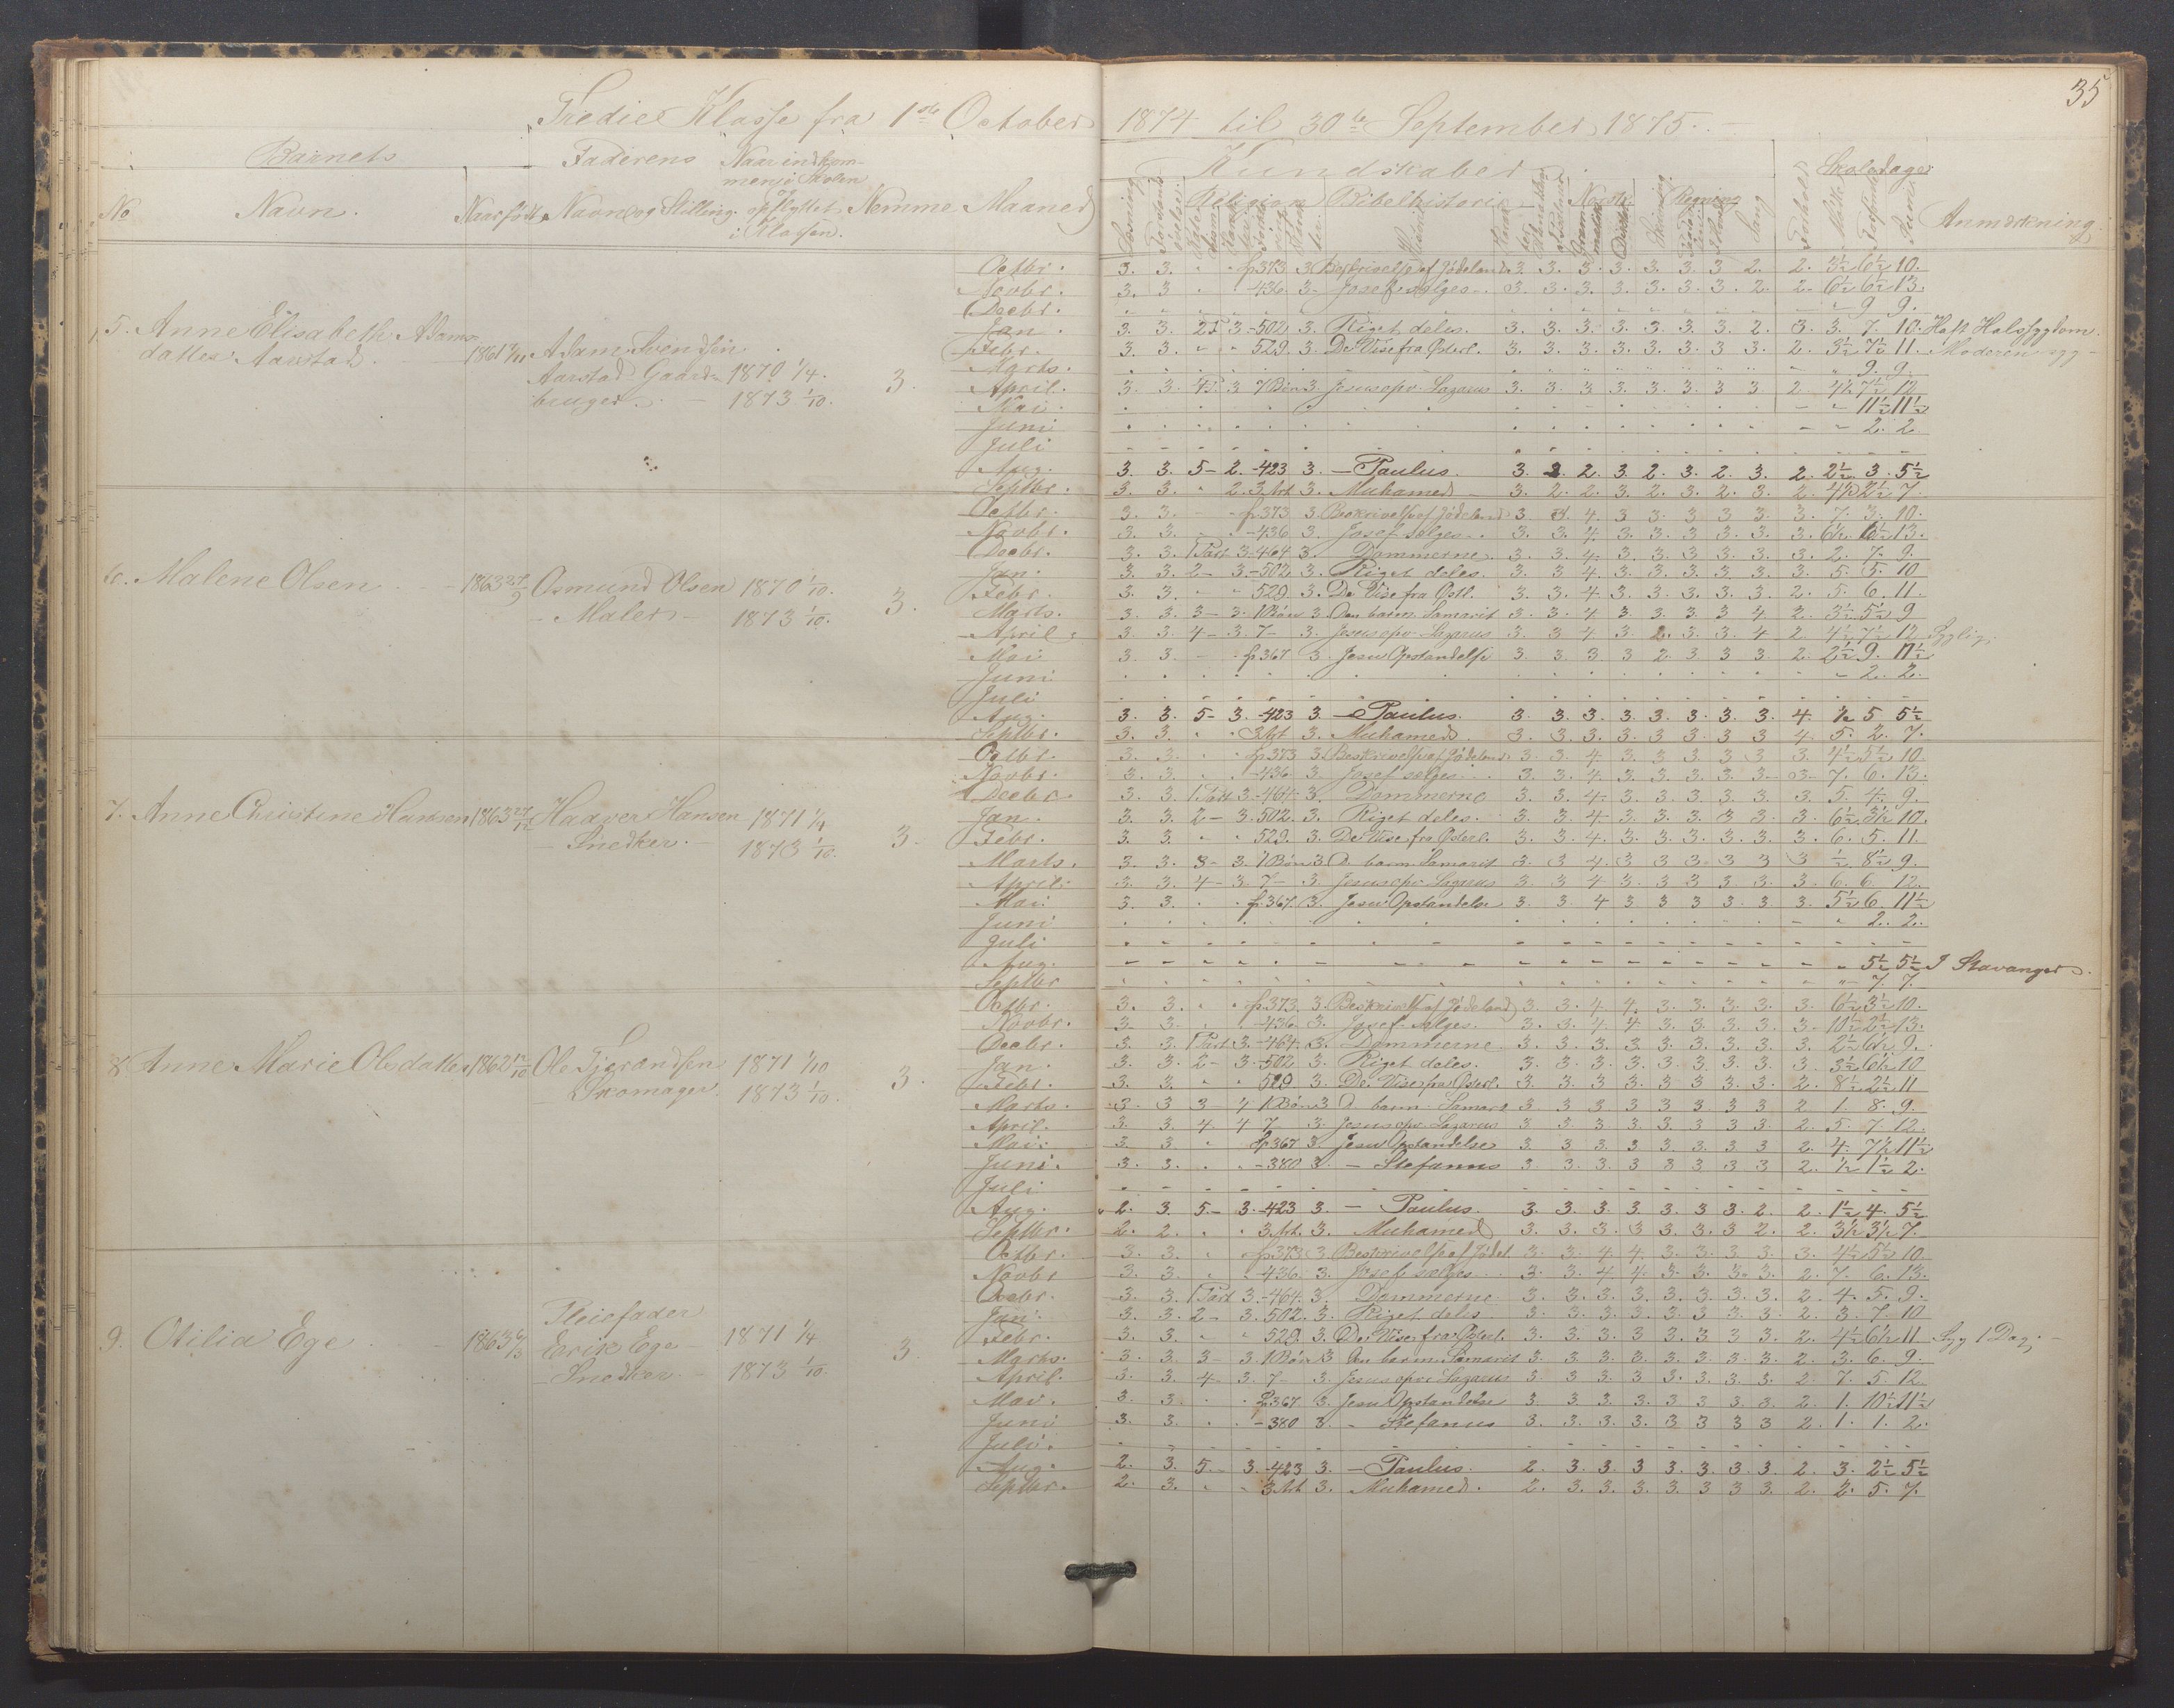 35
Tredie Klasse fra 1ste October 1874 til 30te September 1875.
Barnets Faderens Naar indkom-
men i Skolen
og
opflyttet
i Klassen.
No Navn. Naar født. Navn og Stilling. Nemme Maaned
Kundskaber Skoledage
Religion Bibelhistorie Norsk Regning Sang Anmærkning.
5. Anne Elisabeth Adams-
datter Aarstad.
Adam Svendsen
Aarstad Gaard-
bruger.
1870 1/4.
1873 1/10.
3.
Octbr. 3. 3. p373 3 Beskrivelse af Jødeland 3. 3. 3. 3. 3. 3. 3 2. 2. 3½ 6½ 10.
Novbr. 3. 3 436. 3 Josef sælges 3. 3. 3. 3. 3. 3. 3. 2. 2. 6½ 6½ 13.
Decbr. 9 9.
Jan. 3. 3. 3 -502 3. Riget deles. 3. 3. 3. 3. 3. 3. 3. 2. 3. 3. 7. 10. Haft Halssygdom.
Febr. 3. 3. 529. 3. De Vise fra Østerl. 3. 3. 3. 3. 3. 3. 3 3. 2. 3½ 7½ 11. Moderen syg
Marts. 9. 9.
April. 3. 3. 3 7 Bøn 3. Jesus opv. Lazarus 3. 3. 3. 3. 3. 3. 3. 3 2 4½ 7½ 12
Mai 11½ 11½
Juni 2. 2.
Juli
Aug. 3. 3. 5- 2. -423 3. - Paulus. 3. 2. 2. 3. 2. 3. 2. 3. 2. 2½ 3. 5½
Septbr. 3. 3. 2. 3 Art 3. Muhamed 3. 2. 2. 3. 2. 3. 2. 3. 2. 4½ 2½ 7.
6. Malene Olsen 1863 27/9 Osmund Olsen
Maler
1870 1/10.
1873 1/10.
3.
Octbr. 3. 3. p373 3. Beskrivelse af Jødeland 3 3. 4. 3 3. 3 3 3. 3. 7. 3. 10.
Novbr. 3. 3. -436 3. Josef sælges 3. 3. 4. 3. 3. 3. 3. 3. 3. 6½ 6½ 13.
Decbr. 3. 3. 1 Part 3. -464 3. Dommerne. 3. 3. 4. 3. 3. 3. 3. 3. 3. 2. 7. 9.
Jan. 3. 3. 2- 3. -502 3. Riget deles. 3. 3 4. 3. 3. 3. 3. 3. 3. 5. 5. 10
Febr. 3. 3. 529 3. De Vise fra Østl. 3. 3. 4. 3. 3. 3. 3. 3. 2. 5. 6. 11.
Marts. 3. 3. 3- 3. 1 Bøn 3. Den barm. Samarit 3. 3. 4 3. 3. 3. 3 4 2. 3½ 5½ 9
April 3. 3. 4- 3. 7- 3. Jesus opv. Lazarus 3. 3 4 3. 2. 3. 3. 4 2. 4½ 7½ 12 Syglig.
Mai 3. 3. p367 3. Jesu Opstandelse 3. 3. 3 3 2. 3 3 3. 2. 2½ 9. 11½
Juni 2. 2.
Juli
Aug. 3. 3. 5- 3. -423 3. - Paulus. 3. 3. 3. 3. 3. 3. 3. 3. 4. ½ 5 5½
Septbr. 3. 3. 3 Art 3. Muhamed. 3. 3. 3. 3. 3. 3. 3 3 4. 5. 2. 7.
7. Anne Christine Hansen 1863 27/12 Haaver Hansen
Snedker.
1871 1/4
1873 1/10.
3.
Octbr. 3. 3. p373 3. Beskrivelse af Jødeland 3. 3. 4. 3. 3. 3. 3 3 3. 4½ 5½ 10.
Novbr. 3. 3. -436 3. Josef sælges 3. 3. 4. 3. 3. 3. 3. 3. 3. 7. 6. 13.
Decbr. 3. 3. 1 Part 3. -464. 3. Dommerne 3. 3. 4. 3. 3. 3. 3. 3. 3. 5. 4. 9.
Jan. 3. 3. 2- 3. 502. 3. Riget deles. 3. 3. 4. 3. 3. 3. 3 3. 3. 6½ 3½ 10.
Febr. 3. 3. 529. 3. De Vise fra Østerl. 3. 3. 4. 3. 3. 3. 3. 3. 3. 6. 5. 11.
Marts. 3. 3. 3- 3. 1 Bøn 3 D. barm. Samarit 3. 3 4. 3 3 3. 3 3 3 ½ 8½ 9.
April. 3. 3. 4- 3. 7- 3. Jesus opv. Lazarus 3. 3 4 3. 3 3 3. 3. 3. 6. 6. 12.
Mai. 3. 3. p367. 3. Jesu Opstandelse 3. 3. 4 3 3 3 3. 3 3. 5½ 6. 11½
Juni 2. 2.
Juli
Aug. 5½ 5½ I Stavanger.
Septbr 7. 7.
8. Anne Marie Olsdatter 1862 12/10 Ole Tjerandsen
Skomager.
1871 1/10
1873 1/10.
3.
Octbr. 3. 3. p373. 3. Beskrivelse af Jødeland 3. 3. 4 4. 3. 3. 3. 3. 3. 6½ 3½ 10.
Novbr. 3. 3. -436. 3. Josef sælges. 3. 3. 4 4 3. 3. 3. 3. 3. 10½ 2½ 13.
Decbr. 3. 3. 1 Part 3. -464. 3. Dommerne 3. 3. 3. 3. 3. 3. 3. 3. 3. 2½ 6½ 9.
Jan. 3. 3. 2- 3. -502 3. Riget deles. 3. 3. 3. 3. 3. 3. 3. 3. 3. 3½ 6½ 10
Febr. 3. 3. 529 3. De Vise fra Østerl. 3. 3. 3. 3. 3. 3. 3. 3. 2. 8½ 2½ 11
Marts. 3. 3 3- 4 1 Bøn 3 D. barm. Samarit 3 3 3. 3 3 3. 3 3 2 1. 8. 9.
April. 3. 3. 4 4 7 3. Jesus opv. Lazarus 3 3 3. 3. 3. 3. 3. 3. 2. 5. 7. 12.
Mai. 3. 3. p367 3. Jesu Opstandelse 3. 3 3. 3 3. 3. 3 3 2. 4. 7½ 11½
Juni. 3. 3. -380 3. - Stefanus 3. 3. 3. 3 3 3 3 3 2. ½ 1½ 2.
Juli
Aug. 2. 3. 5.- 3. -423 3. - Paulus. 3. 3. 3. 3. 3. 3. 3. 2. 2. 1½ 4. 5½
Septbr. 2. 2. 3 Art. 3. Muhamed 3. 3. 3. 3 3. 3. 3 2. 2. 3½ 3½ 7.
9. Otilia Ege 1863 Pleiefader
Erik Ege
Snedker.
1871 1/4
1873 1/10.
3.
Octbr. 3. 3. p373 3. Beskrivelse af Jødel. 3. 3. 4 4. 3. 3. 3. 3. 3. 4½ 5½ 10.
Novbr 3. 3. -436 3. Josef sælges 3. 3. 4. 4. 3. 3. 3. 3. 2. 7. 6. 13.
Decbr. 3. 3. 1 Part 3. -464. 3. Dommerne 3. 3. 3. 3. 3. 3. 3. 3. 2. 4. 5. 9.
Jan. 3. 3. 2- 3. 502. 3. Riget deles 3. 3. 3. 3. 3. 3. 3. 3. 2. 3. 7. 10
Febr. 3. 3. 529. 3. De Vise fra Østerl. 3. 3. 3. 3 3. 3 3 3. 2. 4½ 6½ 11 Syg 1 Dag.
Marts. 3. 3. 3- 3. 1 Bøn 3 Den barm. Samarit 3. 3. 3. 3. 3. 3. 3. 3. 2. 3. 6. 9.
April. 3. 3. 4- 3. 7- 3. Jesus opv. Lazarus 3. 3 3. 3 3. 3. 3. 3. 2. 7. 5. 12
Mai. 3. 3. p367. 3. Jesu Opstandelse 3. 3. 3. 3. 3 3 3. 3. 2. 1. 10½ 11½
Juni 3. 3. -380 3. - Stefanus 3. 3. 3. 3. 3 3 3 3 2. 1. 1. 2.
Juli.
Aug. 2. 3. 5.- 3. -423 3. - Paulus. 2. 3. 3. 3 3. 3. 3. 3. 2. 3. 2½ 5½
Septbr. 2. 3. 3 Art 3. Muhamed. 2. 3. 3. 3. 3. 3 3 3. 2. 2. 5. 7.